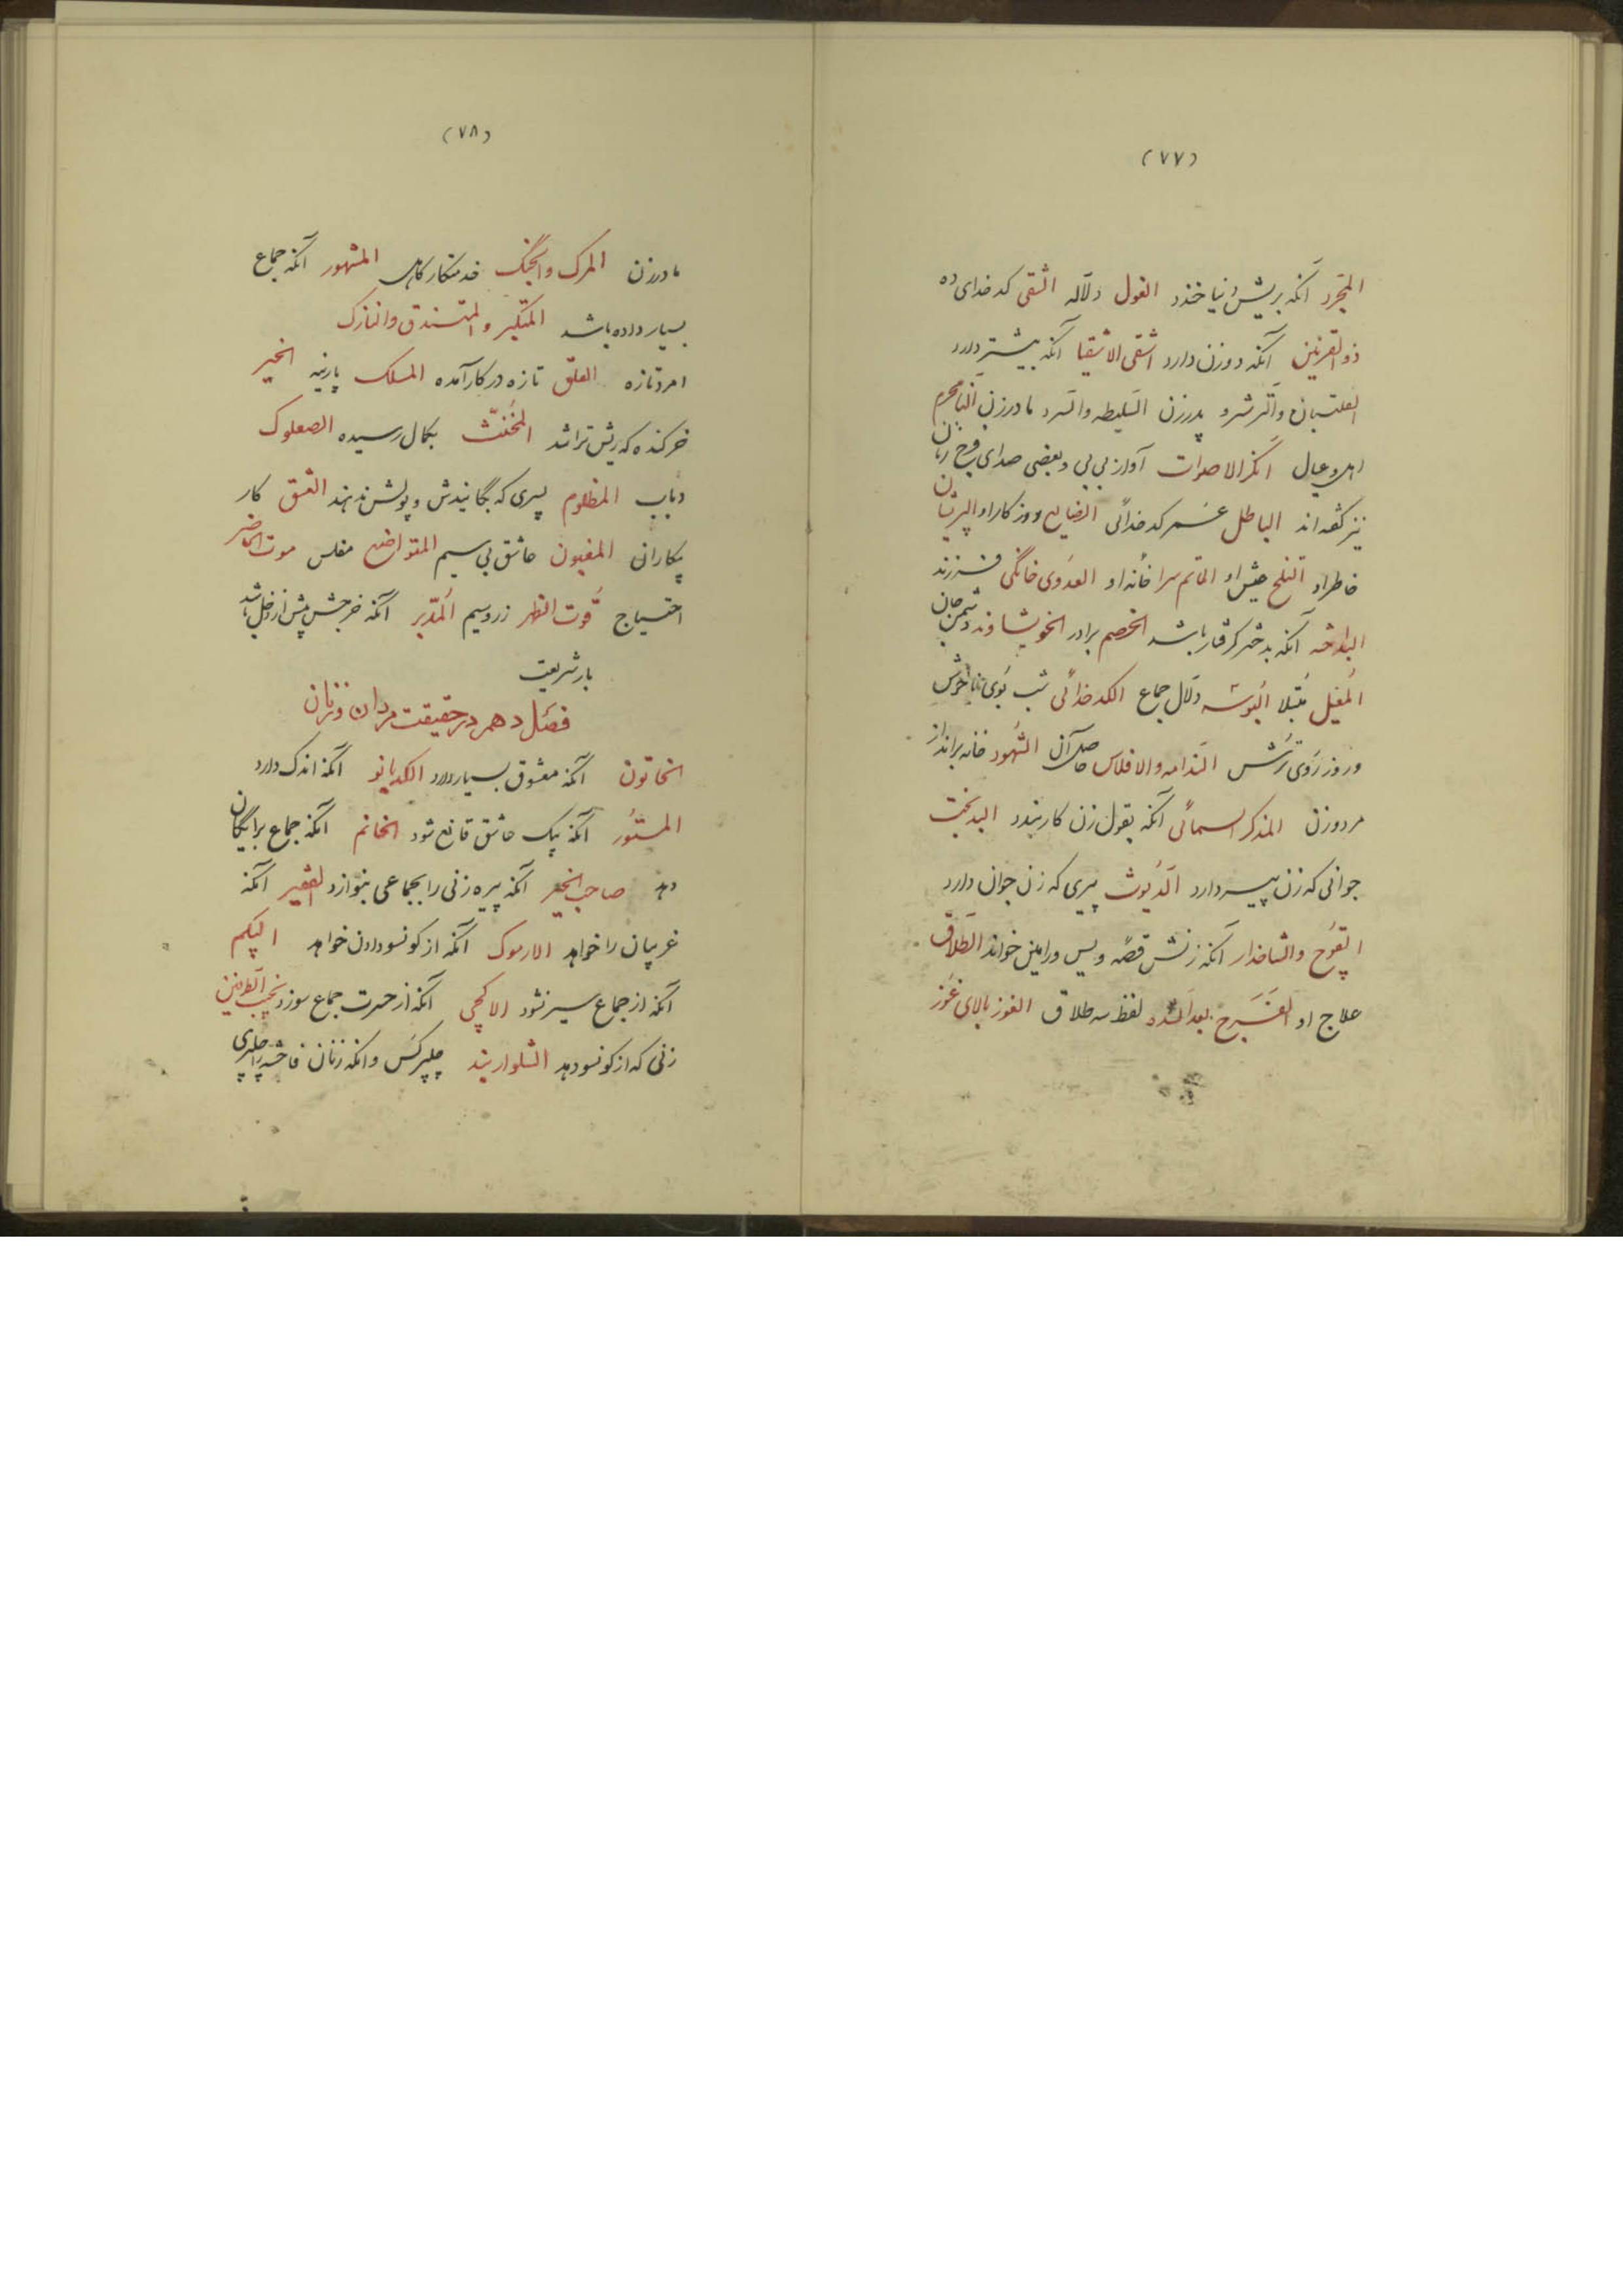 (۷۷)
المجرد آنکه بریش دنیا خندد الغول دلاله الشقی کدخدای ده
ذوالقرنین آنکه دو زن دارد اشقی الاشقیا آنکه بیشتر دارد
القلتبان و پدرزن السلیطه والسرد مادرزن النامحرم
اهل و عیال انکر الاصوات آواز بی بی و بعضی صدای فرج زنان
نیز گفته اند الباطل عمر کدخدائی الضایع روزگار او الپریشان
خاطر او التلخ عیش او الماتم سرا خانه او العدوی خانگی فرزند
البداختر آنکه بدختر گرفتار باشد الخصم برادر الخویشاوند دشمن جان
المغیل مبتلا البوسه دلال جماع الکدخدائی شب بوی ناخوش
و روز روی ترش الندامه والافلاس حاصل آن الشهود خانه برانداز
مرد و زن المذکر السمائی آنکه بقول زن کار بندد البدبخت
جوانی که زن پیر دارد الدیوث پیری که زن جوان دارد
القوچ والشاخدار آنکه زنش قصه ویس ورامین خواند الطلاق
علاج او الفرج بعد الشده لفظ سه طلاق الغوز بالای غوز
(۷۸)
مادرزن المرک والجنگ خدمتکار کاهل المشهور آنکه جماع
بسیار داده باشد المتکبر و والنازک
امرد تازه العلق تازه در کار آمده المسلک پارینه الخیر
خرکنده که ریش تراشد المخنث بکمال رسیده الصعلوک
دباب المظلوم پسری که بگایندش و پولش ندهند العشق کار
بیکاران المغبون عاشق بی سیم المتواضع مفلس موت الحاضر
احتیاج قوت الظهر زر و سیم المدبر آنکه خرجش بیش از دخل باشد
بار شریعت
فصل دهم در حقیقت مردان و زنان
الخاتون آنکه معشوق بسیار دارد الکدبانو آنکه اندک دارد
المستور آنکه بیک عاشق قانع شود الخانم آنکه جماع برایگان
دهد صاحب الخیر آنکه پیره زنی را بجماعی بنوازد الفقیر آنکه
غریبان را خواهد الارموک آنکه از کونسو دادن خواهد البکم
آنکه از جماع سیر نشود الاکچی آنکه از حسرت جماع سوزد نجیب الطرفین
زنی که از کونسو دهد الشلواربند چلپرکس و آنکه زنان فاحشه را